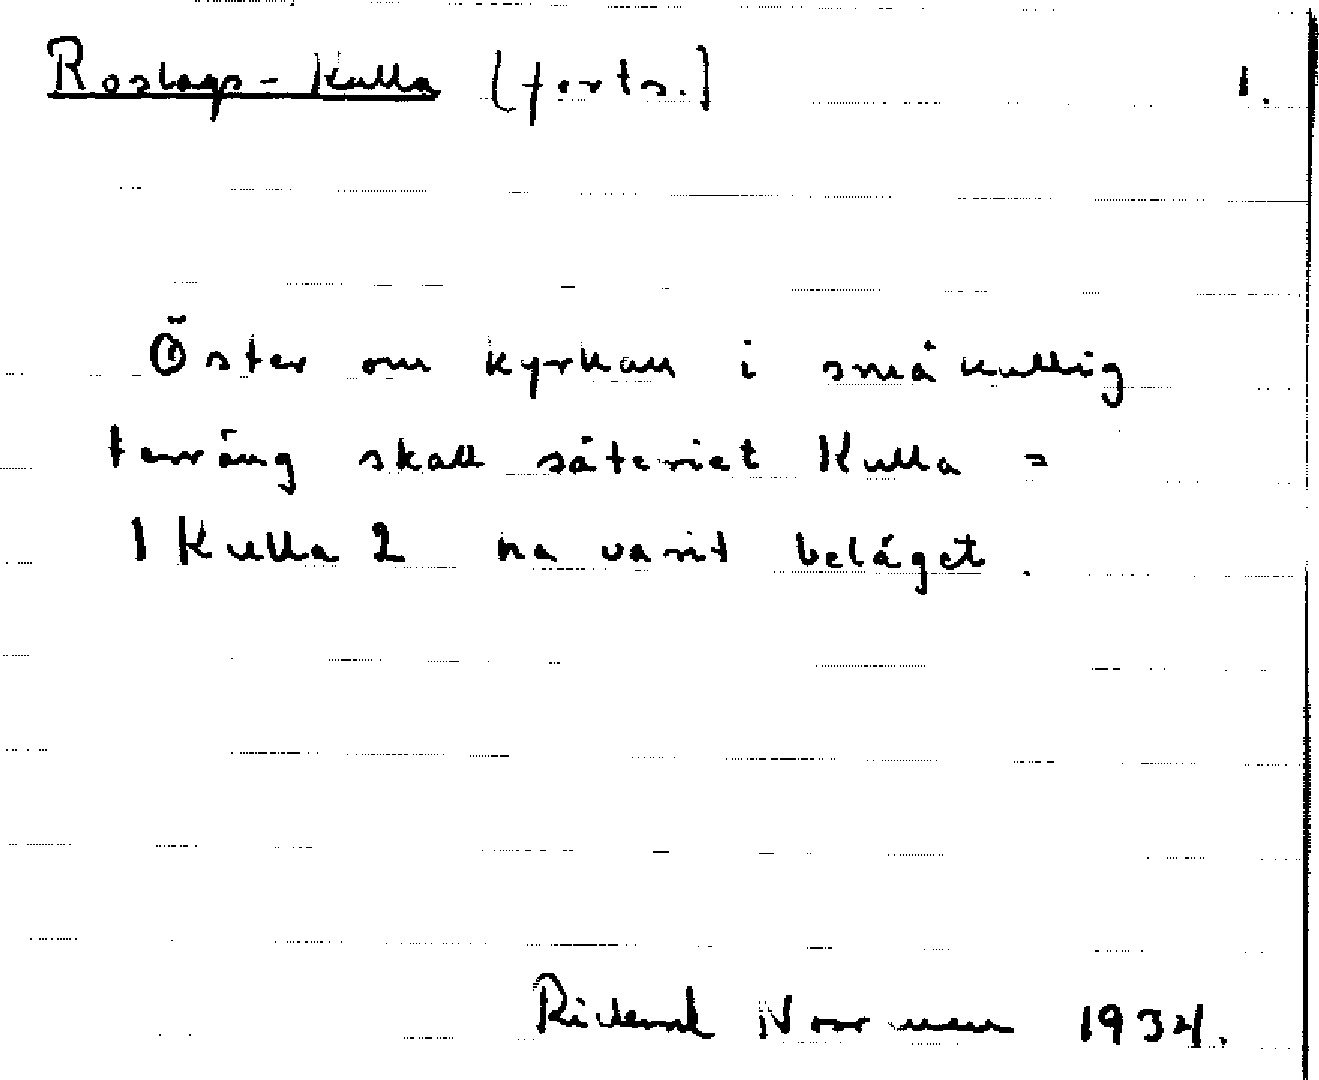 Roslags-Kulla (forts.) 1.
Öster om kyrkan i småkullig
terräng skall säteriet Kulla =
1 Kulla 2 ha varit beläget.
Rickard Norrman 1934.